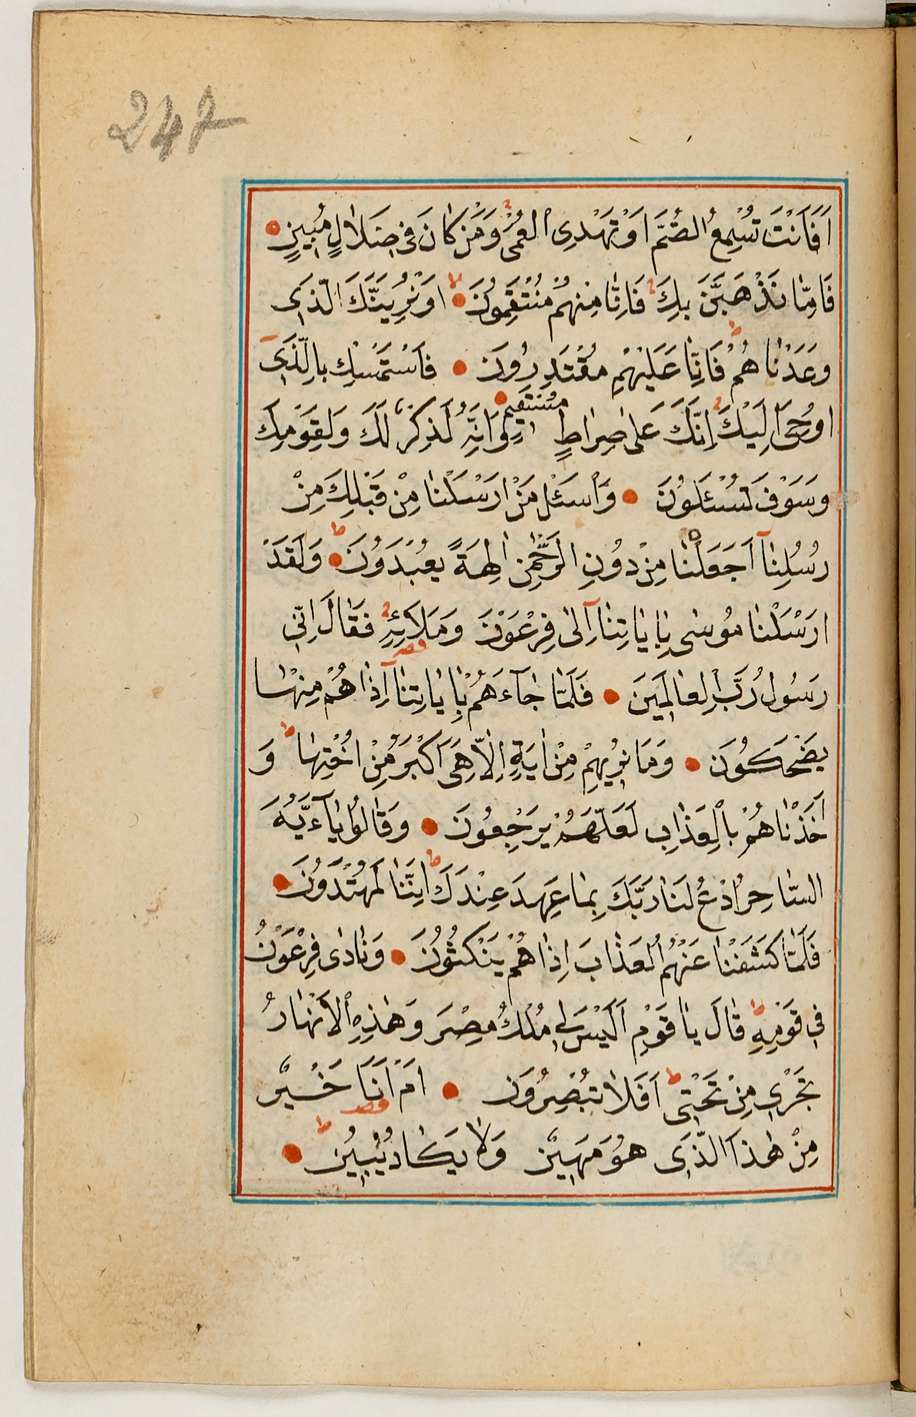 247
اَفَاَنْتَ تُسْمِعُ الصُّمَّ اَوْ تَهْدِى الْعُمْىَ وَمَنْ كَانَ فِى ضَلَالٍ مُبٖينٍ
فَاِمَّا نَذْهَبَنَّ بِكَ فَاِنَّا مِنْهُمْ مُنْتَقِمُونَ اَوْ نُرِيَنَّكَ الَّذٖى
وَعَدْنَاهُمْ فَاِنَّا عَلَيْهِمْ مُقْتَدِرُونَ فَاسْتَمْسِكْ بِالَّذٖى
اُوحِىَ اِلَيْكَ اِنَّكَ عَلٰى صِرَاطٍ مُسْتَقٖيمٍ وَاِنَّهُ لَذِكْرٌ لَكَ وَلِقَوْمِكَ
وَسَوْفَ تُسْئَلُونَ وَاسْئَلْ مَنْ اَرْسَلْنَا مِنْ قَبْلِكَ مِنْ
رُسُلِنَا اَجَعَلْنَا مِنْ دُونِ الرَّحْمٰنِ اٰلِهَةً يُعْبَدُونَ وَلَقَدْ
اَرْسَلْنَا مُوسٰى بِاٰيَاتِنَا اِلٰى فِرْعَوْنَ وَمَلَائِهٖ فَقَالَ اِنّٖى
رَسُولُ رَبِّ الْعَالَمٖينَ فَلَمَّا جَآءَهُمْ بِاٰيَاتِنَا اِذَا هُمْ مِنْهَا
يَضْحَكُونَ وَمَا نُرٖيهِمْ مِنْ اٰيَةٍ اِلَّا هِىَ اَكْبَرُ مِنْ اُخْتِهَا وَ
اَخَذْنَاهُمْ بِالْعَذَابِ لَعَلَّهُمْ يَرْجِعُونَ وَقَالُوا يَآءَيُّهَ
السَّاحِرُ ادْعُ لَنَا رَبَّكَ بِمَا عَهِدَ عِنْدَكَ اِنَّنَا لَمُهْتَدُونَ
فَلَمَّا كَشَفْنَا عَنْهُمُ الْعَذَابَ اِذَا هُمْ يَنْكُثُونَ وَنَادٰى فِرْعَوْنُ
فِى قَوْمِهٖ قَالَ يَا قَوْمِ اَلَيْسَ لٖى مُلْكُ مِصْرَ وَهٰذِهِ الْاَنْهَارُ
تَجْرٖى مِنْ تَحْتٖى اَفَلَا تُبْصِرُونَ اَمْ اَنَا خَيْرٌ
مِنْ هٰذَا الَّذٖى هُوَ مَهٖينٌ وَلَا يَكَادُ يُبٖينُ